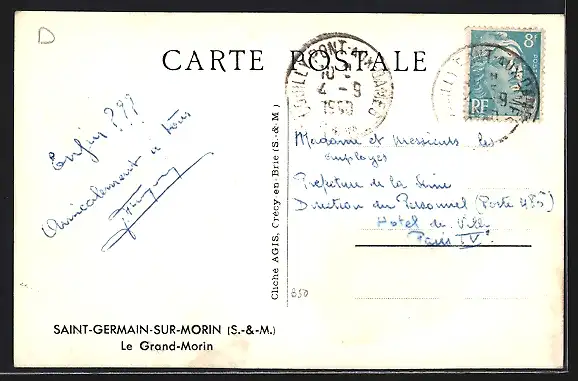 D
CARTE POSTALE
8F
POSTES
RF
COUILLY-PONT-AUX-DAMES
4 - 9
1950
PONT-AUX-DAMES
Enfin ???
Amicalement à tous
Madame et Messieurs les
employés
Préfecture de la Seine
Direction du Personnel (Poste 485)
Hotel de Ville
Paris IVe
Cliché AGIS, Crécy-en-Brie (S.-&-M.)
850
SAINT-GERMAIN-SUR-MORIN (S.-&-M.)
Le Grand-Morin